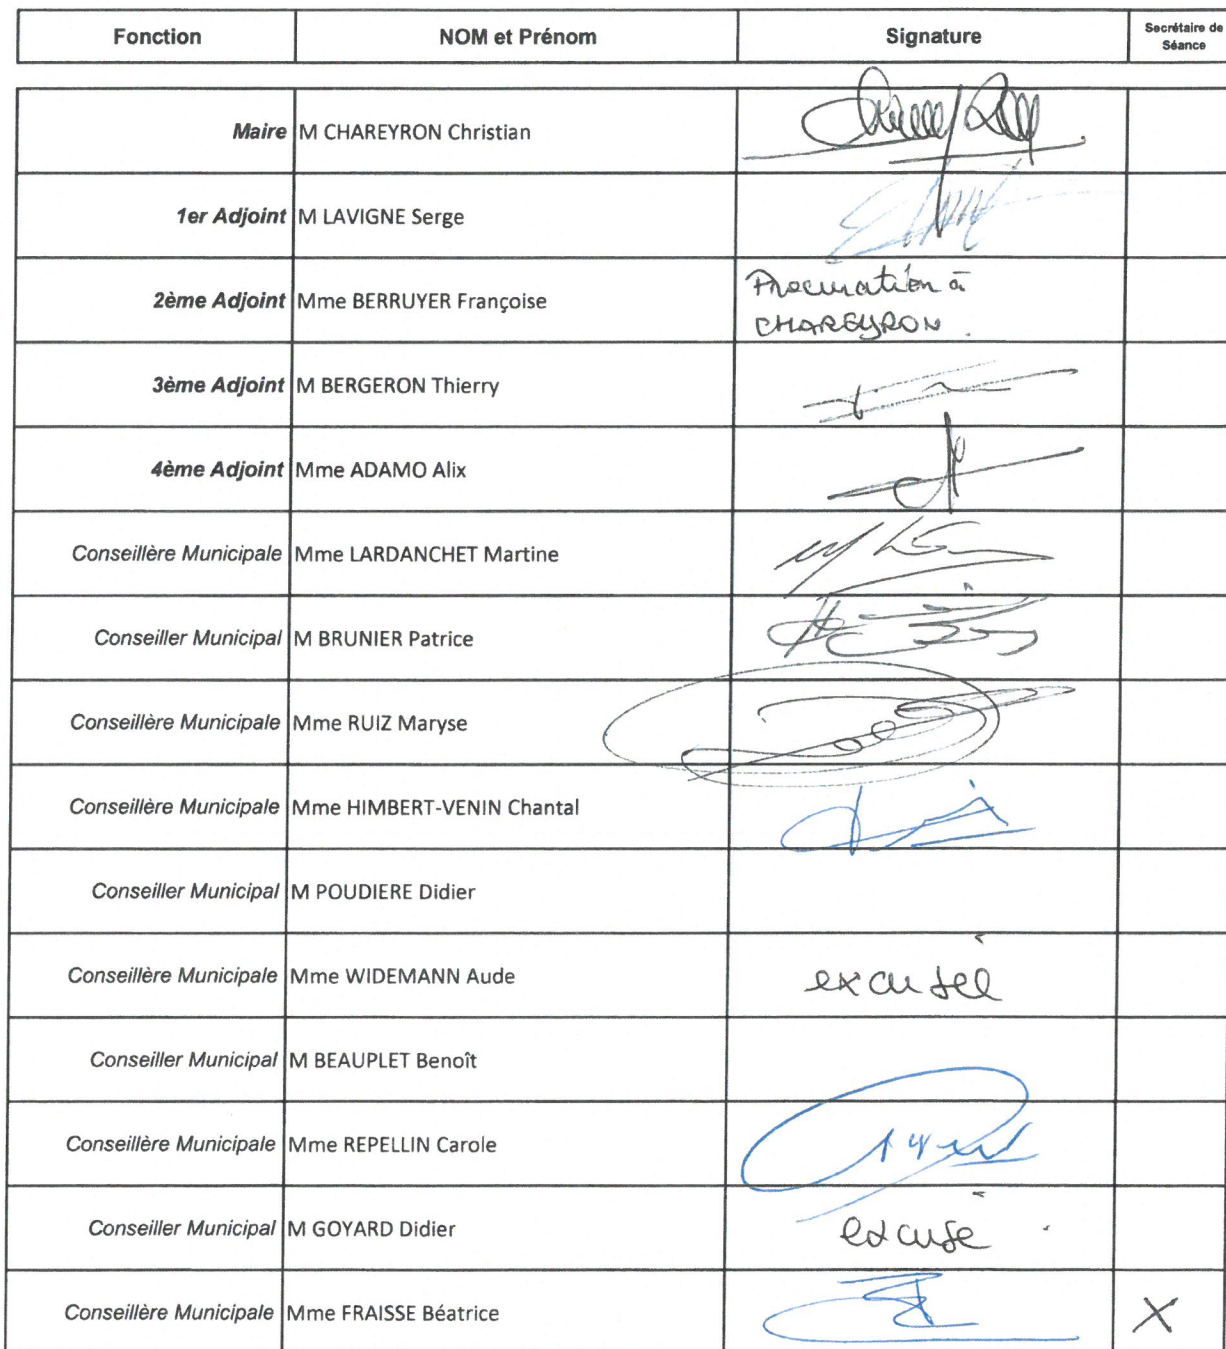 Fonction NOM et Prénom Signature Secrétaire de
Séance
Maire M CHAREYRON Christian
1er Adjoint M LAVIGNE Serge
2ème Adjoint Mme BERRUYER Françoise Procuration à
CHAREYRON.
3ème Adjoint M BERGERON Thierry
4ème Adjoint Mme ADAMO Alix
Conseillère Municipale Mme LARDANCHET Martine
Conseiller Municipal M BRUNIER Patrice
Conseillère Municipale Mme RUIZ Maryse
Conseillère Municipale Mme HIMBERT-VENIN Chantal
Conseiller Municipal M POUDIERE Didier
Conseillère Municipale Mme WIDEMANN Aude excusée
Conseiller Municipal M BEAUPLET Benoît
Conseillère Municipale Mme REPELLIN Carole
Conseiller Municipal M GOYARD Didier excusé
Conseillère Municipale Mme FRAISSE Béatrice X